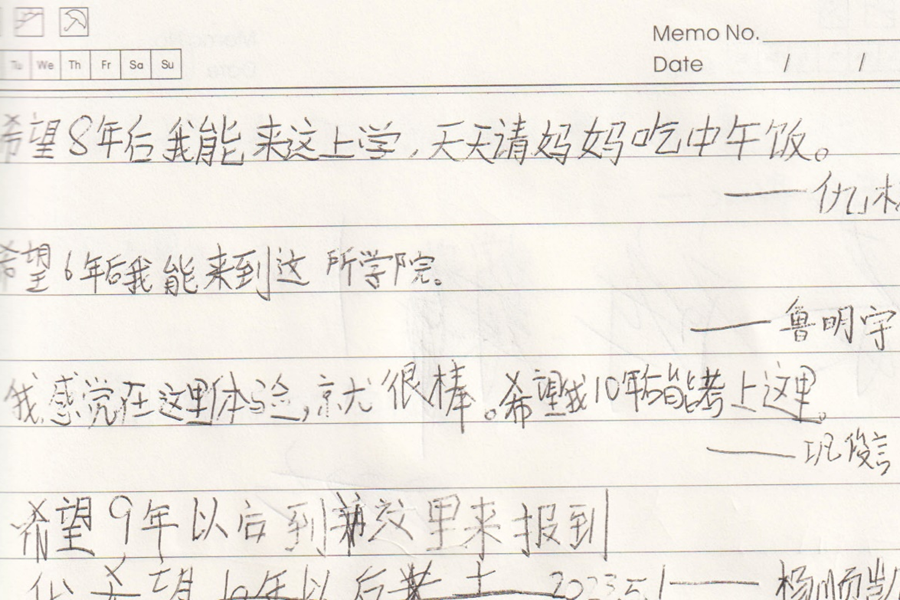 Memo No.
Tu We Th Fr Sa Su
Date / /
希望8年后我能来这上学,天天请妈妈吃中午饭。
——仇
希望6年后我能来到这所学院。
——鲁明宇
我感觉在这里体验,就很棒。希望我10年后能考上这里。
——巩俊言
希望9年以后到这里来报到
希望10年以后考上 2023.5.1——杨顺凯